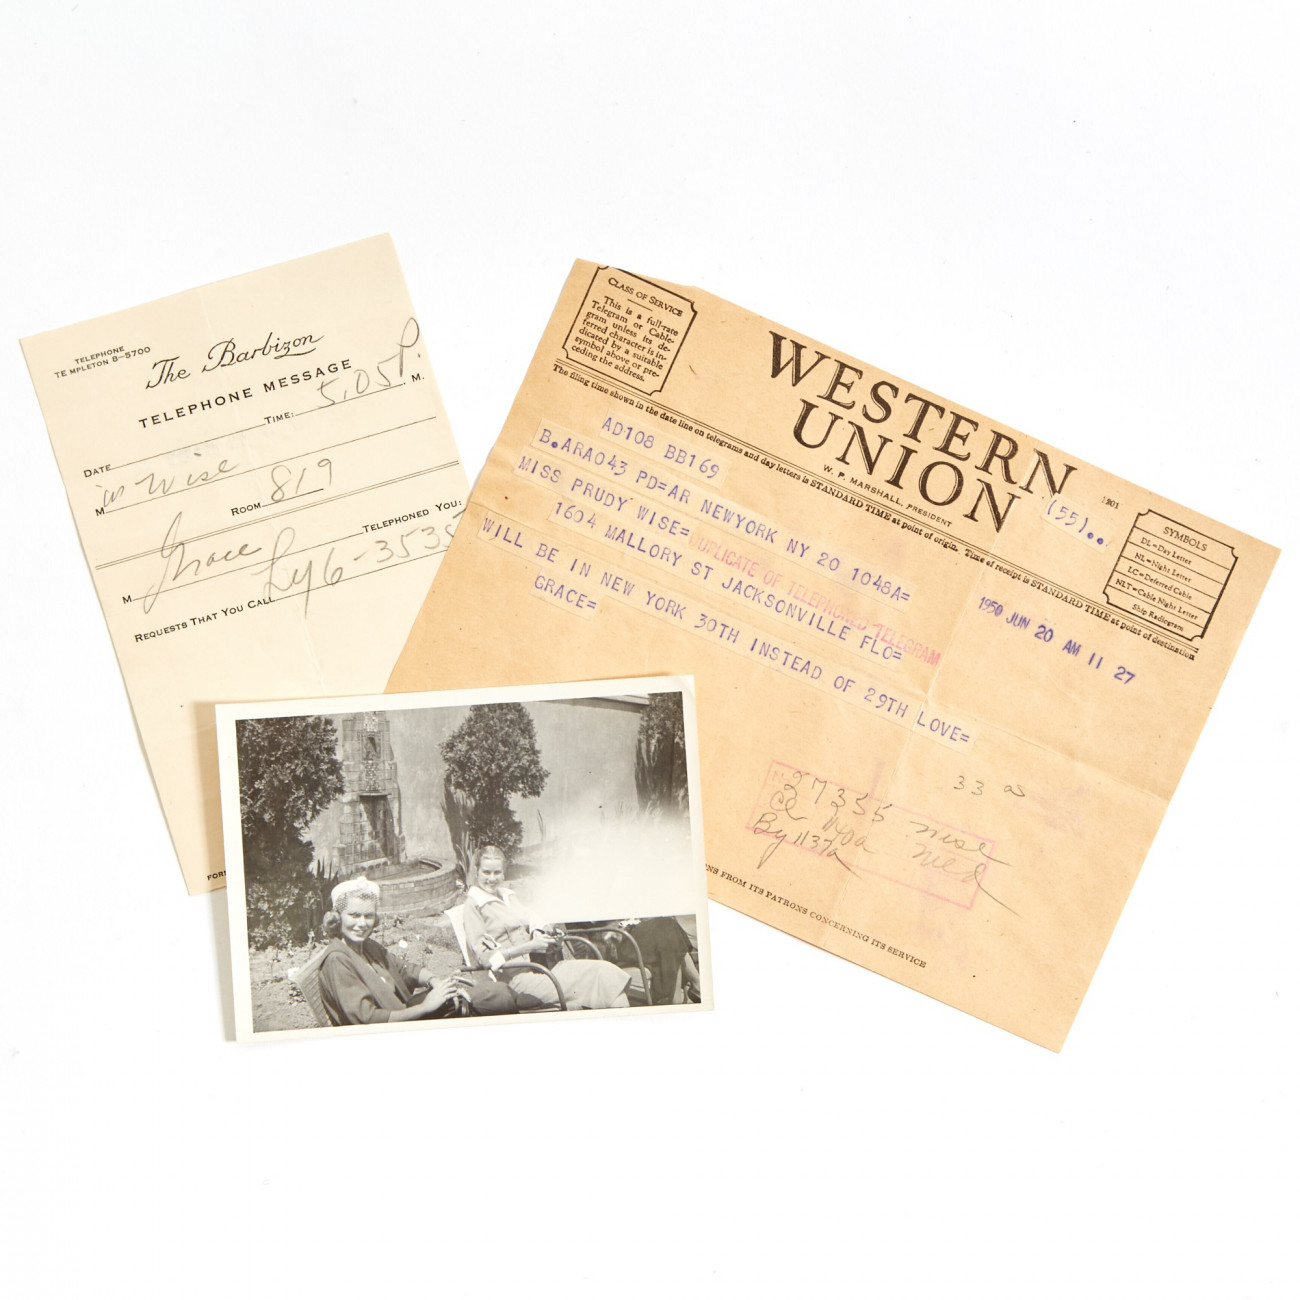 TELEPHONE
TE MPLETON 8-5700
The Barbizon
TELEPHONE MESSAGE
TIME: 5.05 P. M.
DATE
M Wise ROOM 819
M Grace TELEPHONED YOU:
REQUESTS THAT YOU CALL Ly 6-3535
FOR
CLASS OF SERVICE
This is a full-rate
Telegram or Cable-
gram unless its de-
ferred character is in-
dicated by a suitable
symbol above or pre-
ceding the address.
WESTERN
UNION
W. P. MARSHALL, PRESIDENT
1201
(55)..
SYMBOLS
DL=Day Letter
NL=Night Letter
LC=Deferred Cable
NLT=Cable Night Letter
Ship Radiogram
The filing time shown in the date line on telegrams and day letters is STANDARD TIME at point of origin. Time of receipt is STANDARD TIME at point of destination
AD108 BB169
B.ARA043 PD=AR NEWYORK NY 20 1048A=
MISS PRUDY WISE=
DUPLICATE OF TELEPHONED TELEGRAM
1604 MALLORY ST JACKSONVILLE FLO=
1950 JUN 20 AM 11 27
WILL BE IN NEW YORK 30TH INSTEAD OF 29TH LOVE=
GRACE=
33
27355
By 1137a
NS FROM ITS PATRONS CONCERNING ITS SERVICE